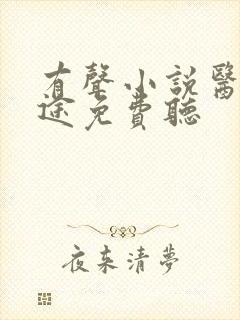 有聲小說醫
途免費聽
夜来清夢